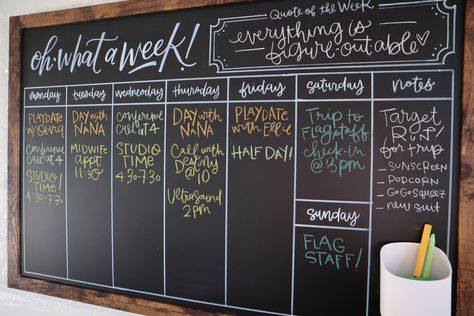 oh, what a week!
Quote of the Week
everything is
figure-out-able
monday
tuesday
wednesday
thursday
friday
saturday
notes
PLAYDATE
Conference
call at 4
STUDIO
TIME!
4:30-7:30
DAY with
NANA
MIDWIFE
appt
11:30
Conference
CALL AT 4
STUDIO
TIME
4:30-7:30
DAY with
NANA
Call with
Destiny
@ 1
Ultrasound
2pm
PLAYDATE
with Ellie
HALF DAY!
Trip to
Flagstaff
check-in
@ 3pm
sunday
FLAG
STAFF!
Target
RUN
for trip
- SUNSCREEN
- POPCORN
- GoGoSqueez
- new suit